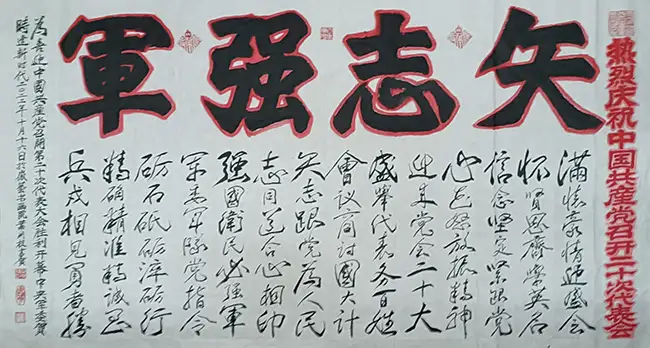 热烈庆祝中国共産党召开二十次代表会
矢志强軍
满怀豪情迎盛会
怀贤思齊学英名
信念坚定紧跟党
心花怒放振精神
迎来党会二十大
盛举代表各百姓
會议商讨國大计
矢志跟党為人民
志同道合心相印
强國衛民必强軍
軍委軍隊党指令
砺石砥砺淬砺行
精确精准精诚
兵戎相見勇者勝
為喜迎中國共産党召開第二十次代表大会胜利开幕中共党委賀
時逢新时代二〇二二年十月十六日於